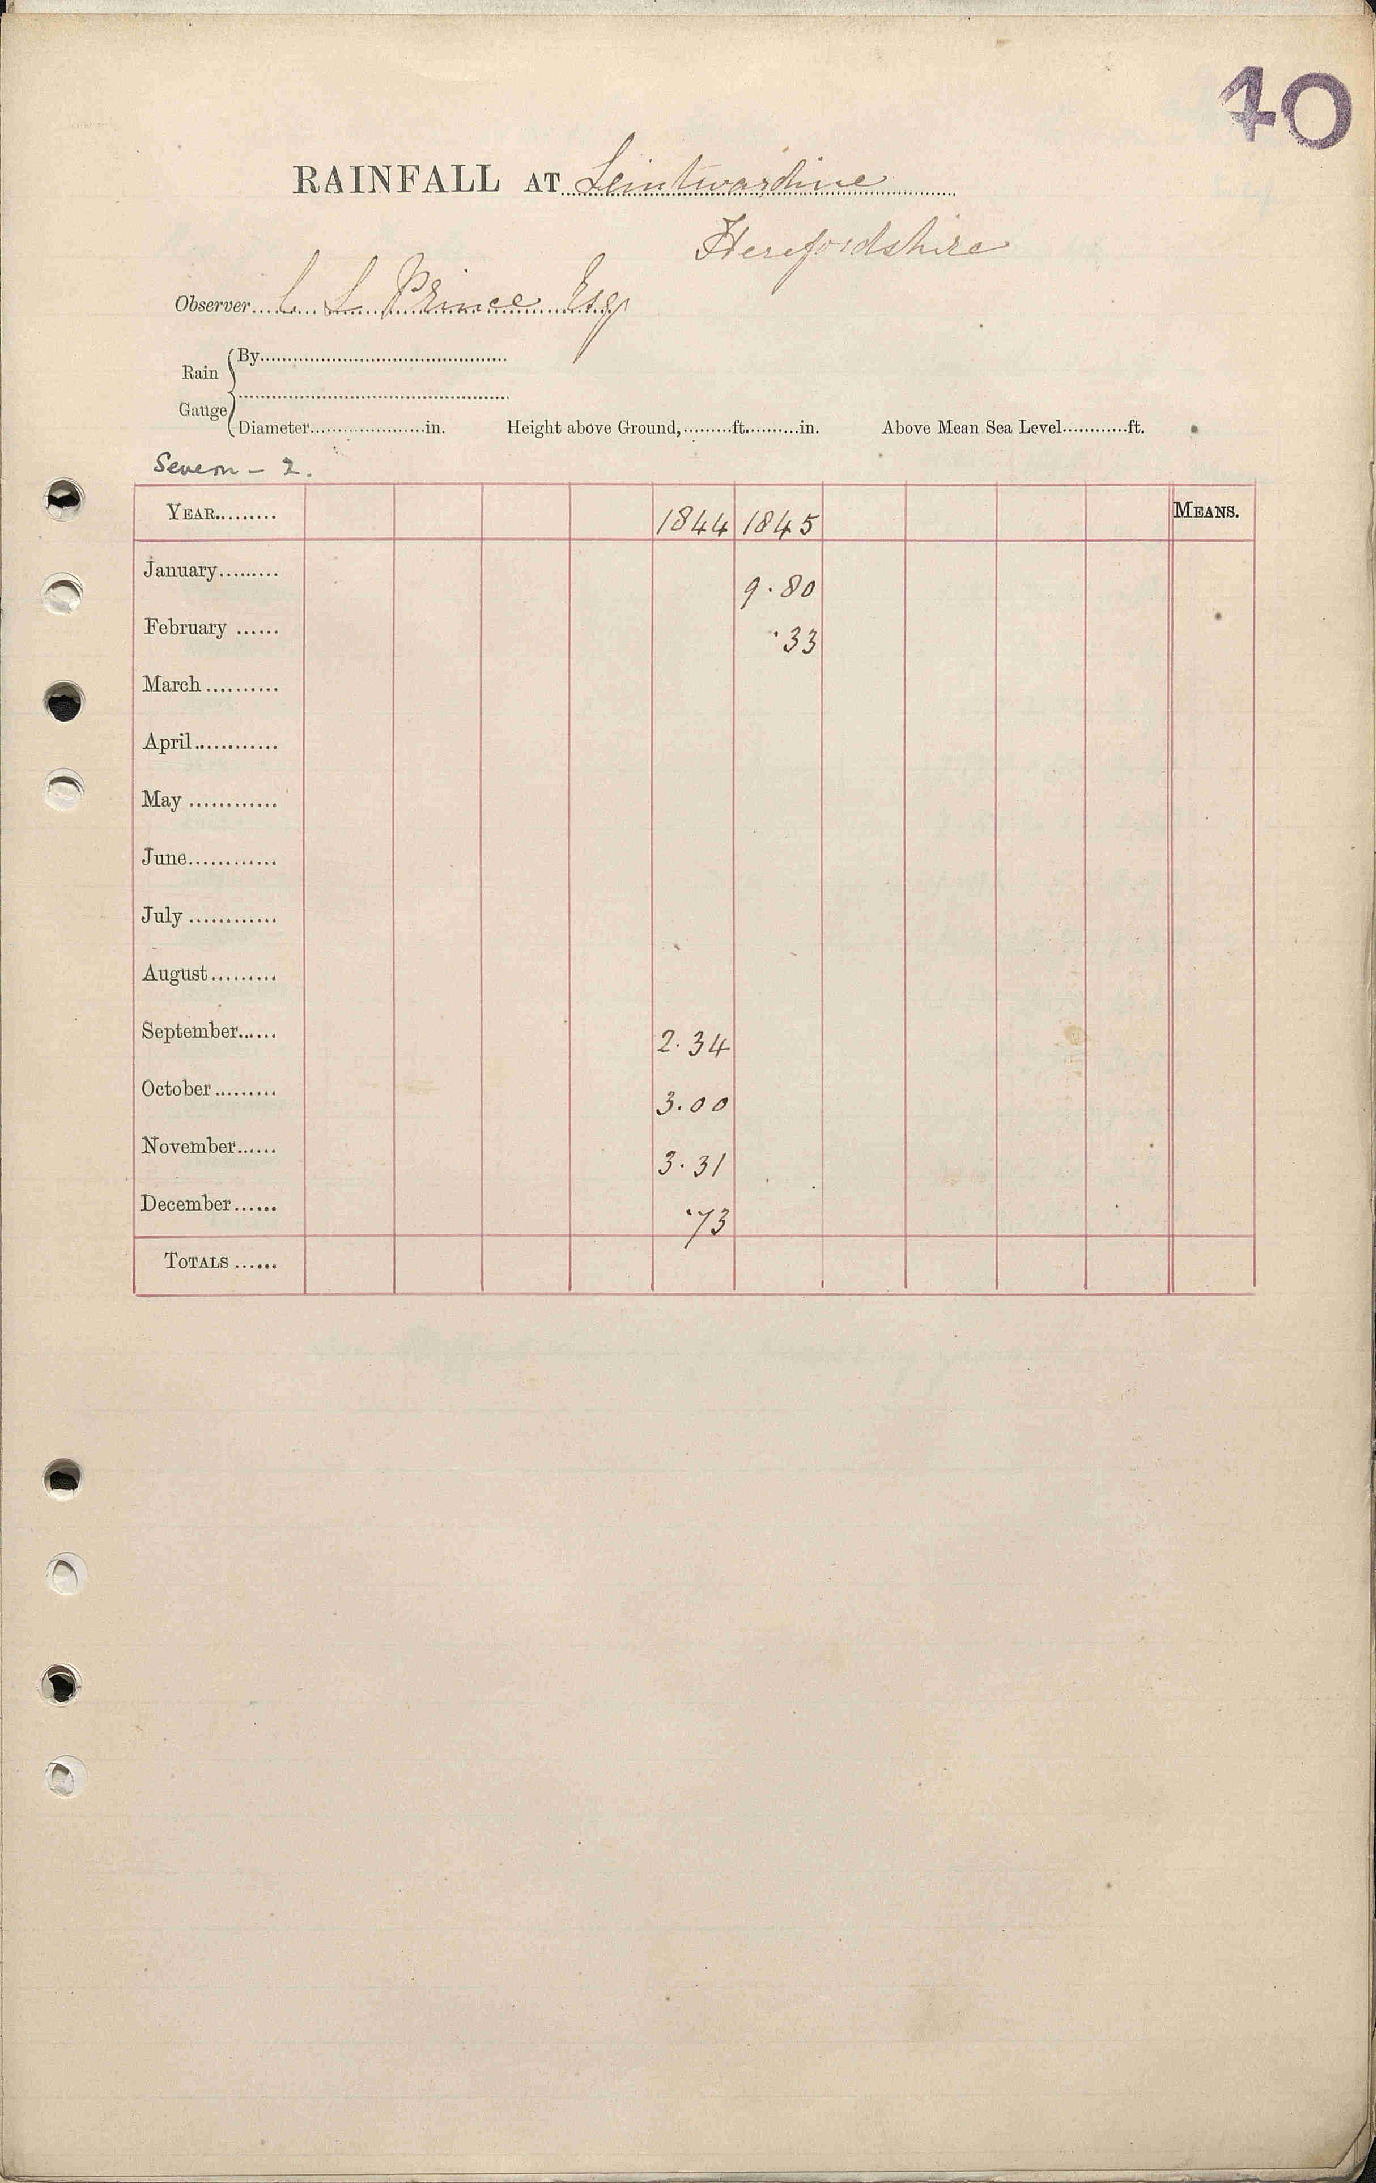 40
RAINFALL AT Leintwardine
Herefordshire
Observer C L Prince Esq
Rain Gauge { By
Diameter in. Height above Ground, ft. in. Above Mean Sea Level ft.
Severn - 2.
YEAR 1844 1845 MEANS.
January 9.80
February .33
March
April
May
June
July
August
September 2.34
October 3.00
November 3.31
December .73
TOTALS